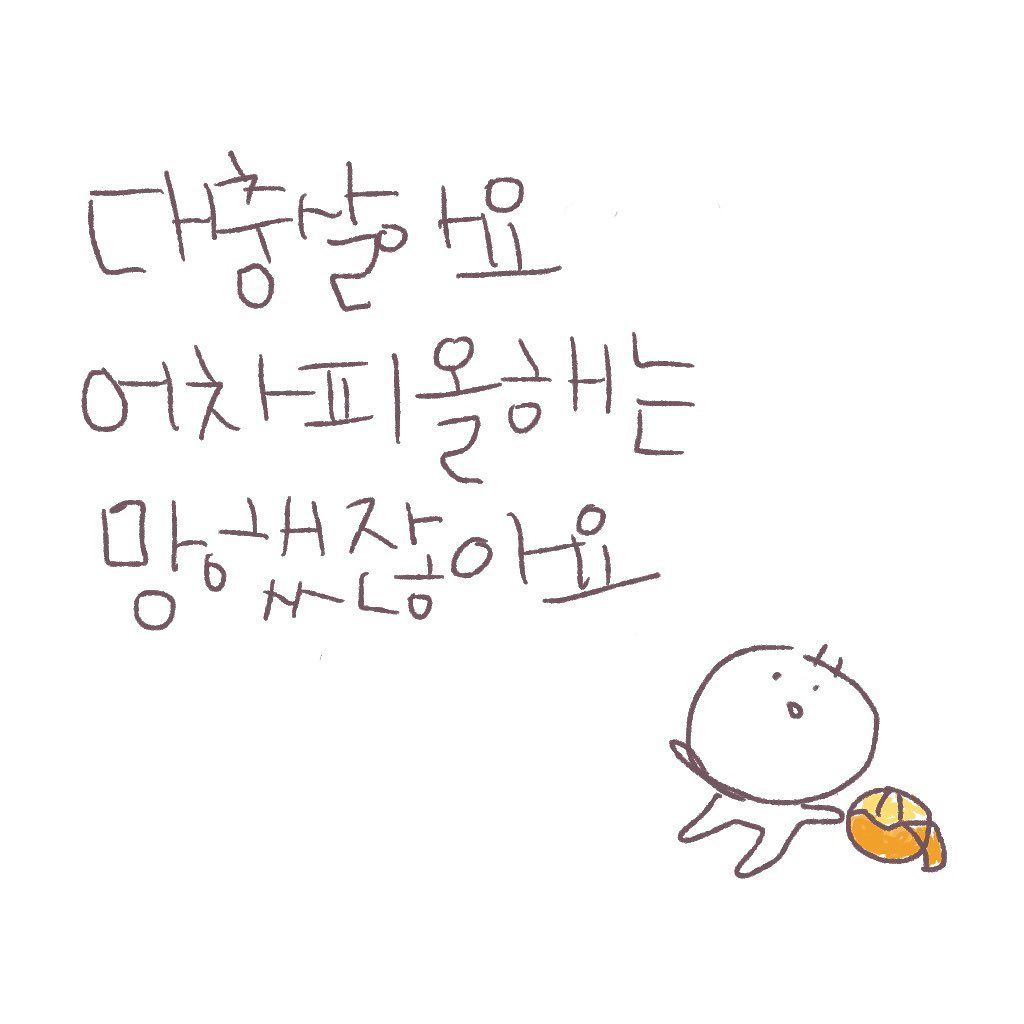 대충살세요
어차피올해는
망했잖아요